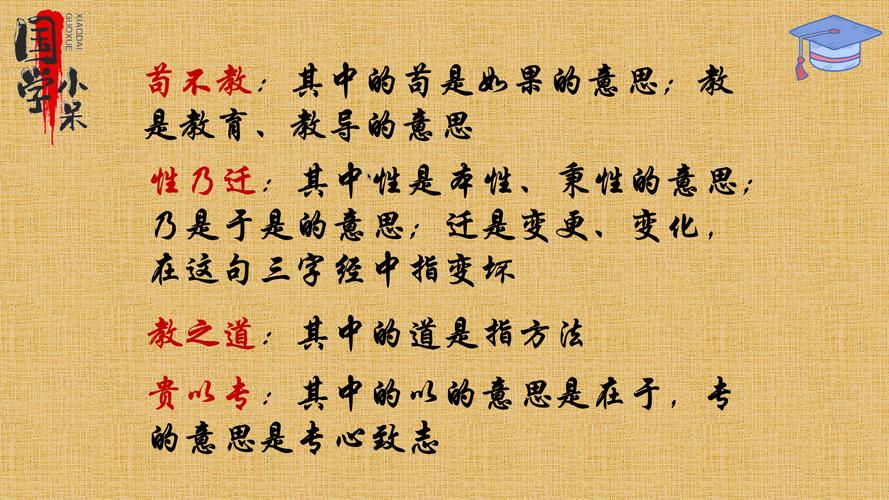 国学
小呆
XIAODAI
GUOXUE
苟不教：其中的苟是如果的意思；教
是教育、教导的意思
性乃迁：其中性是本性、秉性的意思；
乃是于是的意思；迁是变更、变化，
在这句三字经中指变坏
教之道：其中的道是指方法
贵以专：其中的以的意思是在于，专
的意思是专心致志